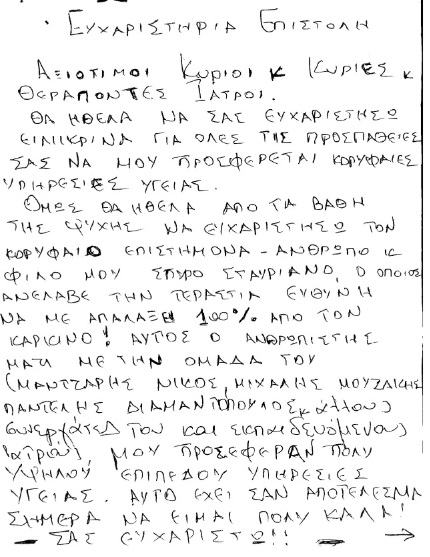 · ΕΥΧΑΡΙΣΤΗΡΙΑ ΕΠΙΣΤΟΛΗ
ΑΞΙΟΤΙΜΟΙ ΚΥΡΙΟΙ Κ ΚΥΡΙΕΣ Κ
ΘΕΡΑΠΟΝΤΕΣ ΙΑΤΡΟΙ.
ΘΑ ΗΘΕΛΑ ΝΑ ΣΑΣ ΕΥΧΑΡΙΣΤΗΣΩ
ΕΙΛΙΚΡΙΝΑ ΓΙΑ ΟΛΕΣ ΤΙΣ ΠΡΟΣΠΑΘΕΙΕΣ
ΣΑΣ ΝΑ ΜΟΥ ΠΡΟΣΦΕΡΕΤΑΙ ΚΟΡΥΦΑΙΕΣ
ΥΠΗΡΕΣΙΕΣ ΥΓΕΙΑΣ.
ΟΜΩΣ ΘΑ ΗΘΕΛΑ ΑΠΟ ΤΑ ΒΑΘΗ
ΤΗΣ ΨΥΧΗΣ ΝΑ ΕΥΧΑΡΙΣΤΗΣΩ ΤΟΝ
ΚΟΡΥΦΑΙΟ ΕΠΙΣΤΗΜΟΝΑ - ΑΝΘΡΩΠΟ Κ
ΦΙΛΟ ΜΟΥ ΣΠΥΡΟ ΣΤΑΥΡΙΑΝΟ, Ο ΟΠΟΙΟΣ
ΑΝΕΛΑΒΕ ΤΗΝ ΤΕΡΑΣΤΙΑ ΕΥΘΥΝΗ
ΝΑ ΜΕ ΑΠΑΛΑΞΕΙ 100% ΑΠΟ ΤΟΝ
ΚΑΡΚΙΝΟ! ΑΥΤΟΣ Ο ΑΝΘΡΩΠΙΣΤΗΣ
ΜΑΖΙ ΜΕ ΤΗΝ ΟΜΑΔΑ ΤΟΥ
(ΜΑΝΤΖΑΡΗΣ ΝΙΚΟΣ, ΜΙΧΑΛΗΣ ΜΟΥΖΑΚΗΣ
ΠΑΝΤΕΛΗΣ ΔΙΑΜΑΝΤΟΠΟΥΛΟΣ κ άλλους
συνεργάτες του και εκπαιδευόμενους
ιατρούς), ΜΟΥ ΠΡΟΣΕΦΕΡΑΝ ΠΟΛΥ
ΥΨΗΛΟΥ ΕΠΙΠΕΔΟΥ ΥΠΗΡΕΣΙΕΣ
ΥΓΕΙΑΣ. ΑΥΤΟ ΕΧΕΙ ΣΑΝ ΑΠΟΤΕΛΕΣΜΑ
ΣΗΜΕΡΑ ΝΑ ΕΙΜΑΙ ΠΟΛΥ ΚΑΛΑ!
— ΣΑΣ ΕΥΧΑΡΙΣΤΩ!! — →